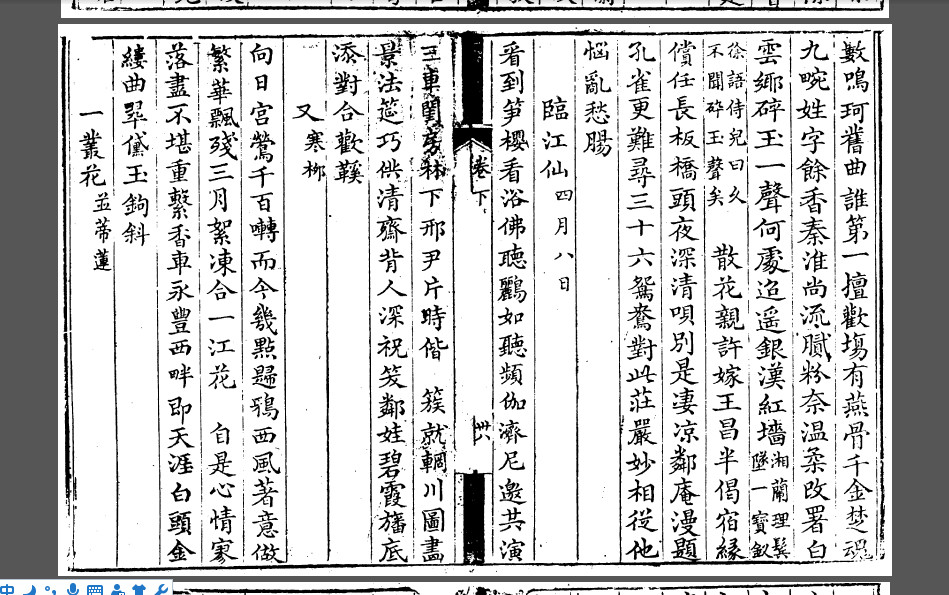 數鳴珂舊曲誰第一擅歡場有燕骨千金楚魂
九畹姓字餘香秦淮尚流膩粉奈溫柔改署白
雲鄉碎玉一聲何處迢遥銀漢紅墻湘蘭理鬓墜一寶釵
徐語侍兒曰久不聞碎玉聲矣　散花親許嫁王昌半偈宿緣
償任長板橋頭夜深清唄別是凄凉鄰庵漫題
孔雀更難尋三十六鴛鴦對此莊嚴妙相從他
惱亂愁腸
臨江仙四月八日
看到笋櫻看浴佛聽鸝如聽頻伽濟尼邀共演
卷下
卅六
三車閨房林下邢尹片時偕　簇就輞川圖畫
景法筵巧供清齋背人深祝笑鄰娃碧霞旛底
添對合歡鞵
又寒柳
向日宫鶯千百囀而今幾點歸鴉西風著意做
繁華飄殘三月絮凍合一江花　自是心情寥
落盡不堪重繫香車永豐西畔即天涯白頭金
縷曲翠黛玉鉤斜
一叢花並蒂蓮
中